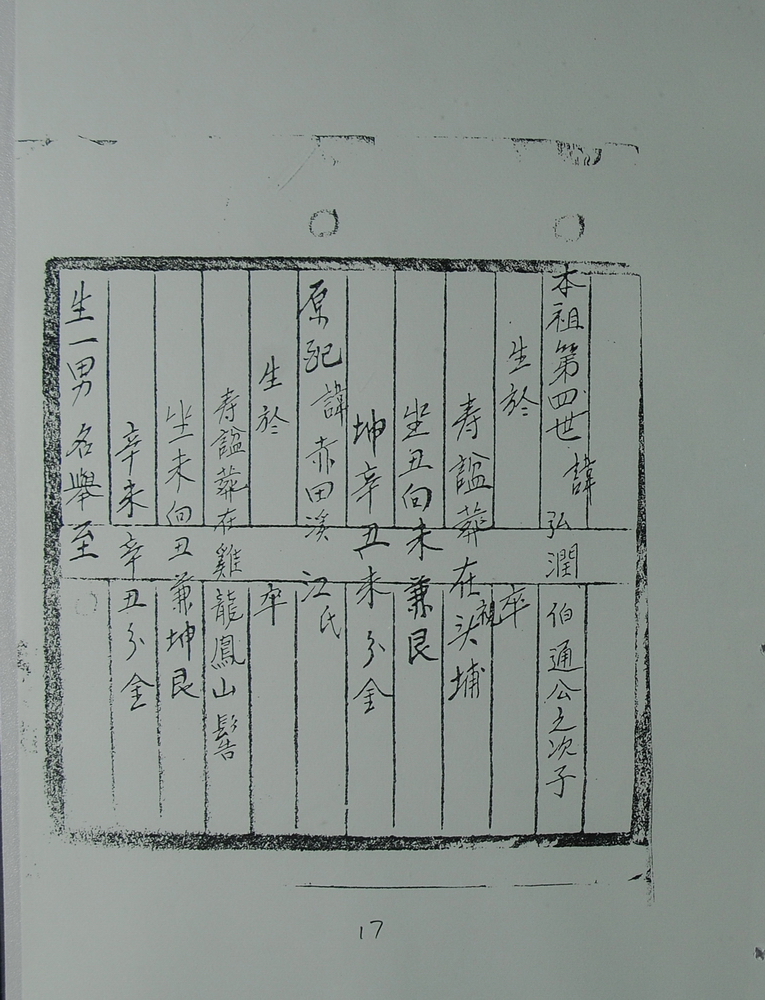 本祖第四世 諱 弘潤 伯通公之次子
生於 卒
寿諡葬在祖头埔
坐丑向未兼艮
坤辛丑未分金
原配諱赤田溪 江氏
生於 卒
寿諡葬在雞龍鳳山髻
坐未向丑兼坤艮
辛未辛丑分金
生一男 名舉至
17